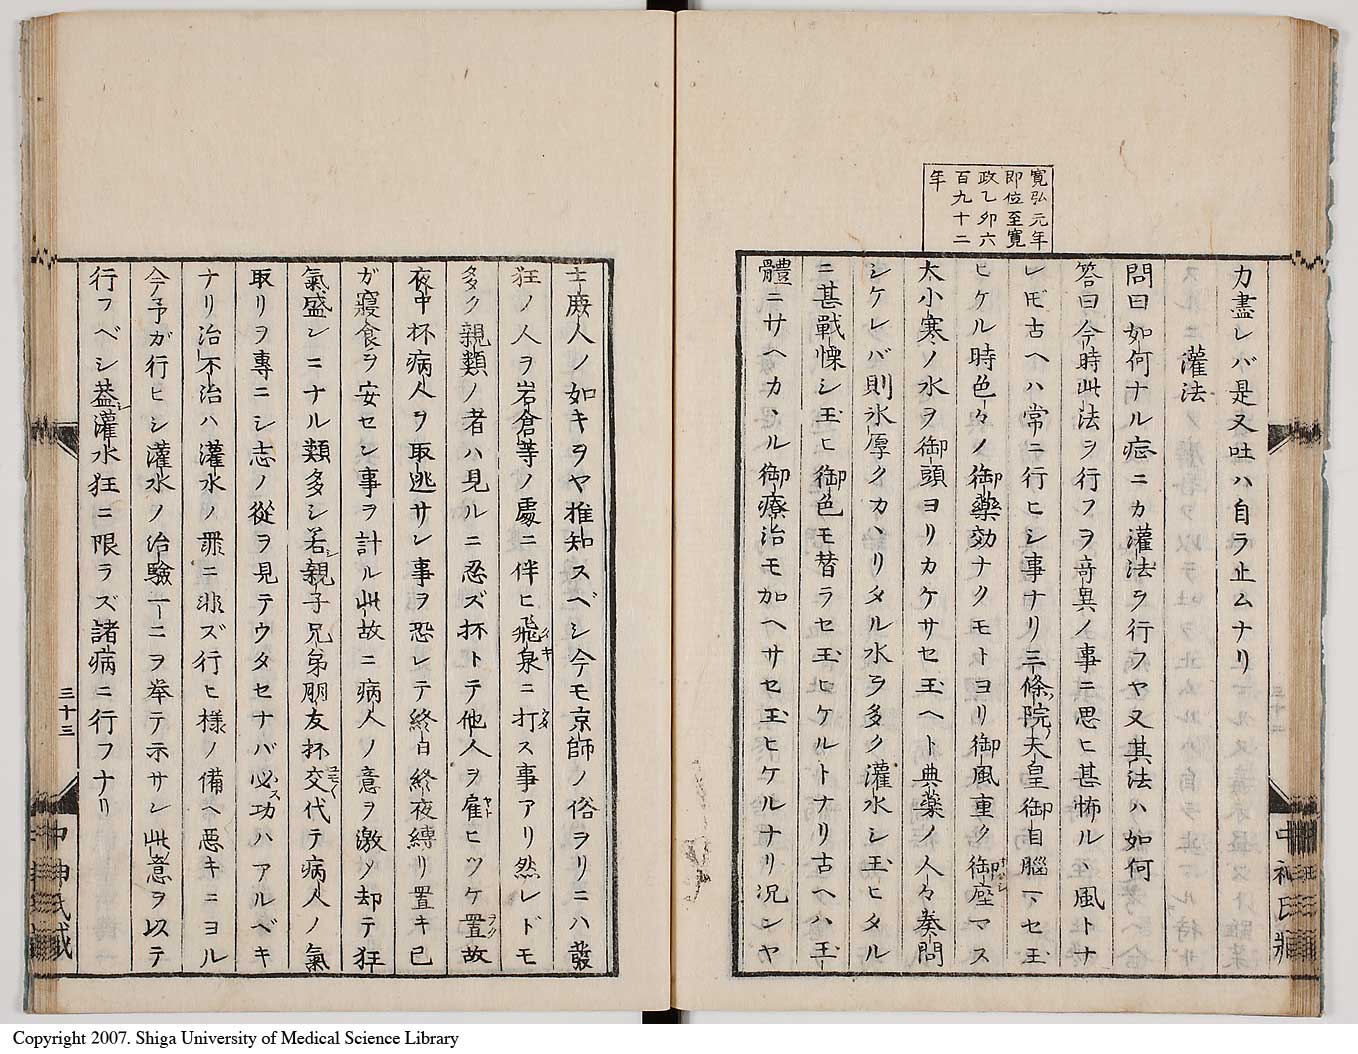 寛弘元年
即位至寛
政乙卯六
百九十二
年
力盡レバ是又吐ハ自ラ止ムナリ
灌法
問曰如何ナル症ニカ灌法ヲ行フヤ又其法ハ如何
答曰今時此法ヲ行フヲ奇異ノ事ニ思ヒ甚怖ルヽ風トナ
レモ古ヘハ常ニ行ヒシ事ナリ三條院ノ天皇御自腦マセ玉
ヒケル時色々ノ御藥効ナクモトヨリ御風重ク御座マス
大小寒ノ水ヲ御頭ヨリカケサセ玉ヘト典藥ノ人々奏問
シケレバ則氷厚クカヽリタル水ヲ多ク灌水シ玉ヒタル
ニ甚戰慄シ玉ヒ御色モ替ラセ玉ヒケルトナリ古ヘハ玉
體ニサヘカヽル御療治モ加ヘサセ玉ヒケルナリ況ンヤ
士庶人ノ如キヲヤ推知スベシ今モ京師ノ俗ヲリニハ發
狂ノ人ヲ岩倉等ノ處ニ伴ヒ飛泉ニ打ス事アリ然レドモ
多ク親類ノ者ハ見ルニ忍ズ抔トテ他人ヲ雇ヒツケ置故
夜中抔病人ヲ取逃サン事ヲ恐レテ終日終夜縛リ置キ己
ガ寢食ヲ安セン事ヲ計ル此故ニ病人ノ意ヲ激メ却テ狂
氣盛ンニナル類多シ若シ親子兄弟朋友抔交代テ病人ノ氣
取リヲ專ニシ志ノ從ヲ見テウタセナバ必ス功ハアルベキ
ナリ治不治ハ灌水ノ罪ニ非ズ行ヒ樣ノ備ヘ悪キニヨル
今予ガ行ヒシ灌水ノ治驗一ニヲ挙テ示サン此意ヲ以テ
行フベシ蓋シ灌水狂ニ限ラズ諸病ニ行フナリ
三十三